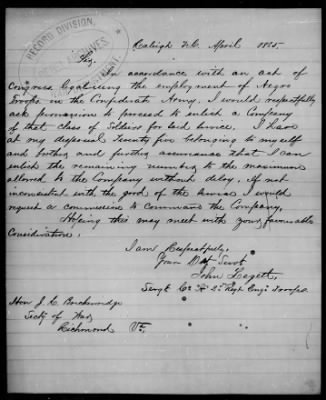 RECORD DIVISION,
ARCHIVES
DEPARTMENT.
Raleigh N.C. April 1865.
Sir,
In accordance with an act of
Congress legalising the employment of Negro
Troops in the Confederate Army, I would respectfully
ask permission to proceed to enlist a Company
of that class of Soldiers for said service, I have
at my disposal Twenty five belonging to myself
and further assurance that I can
enlist the remaining number to the maximum
allowed to the Company without delay, If not
inconsistent with the good of the service I would
request a commission to command the Company,
Hoping this may meet with your favourable
Consideration,
I am Respectfully,
Your Obt Servt
John Legett,
Sergt Co. H 2d Regt Engr Troops
Hon J. C. Breckenridge
Secty of War,
Richmond Va,